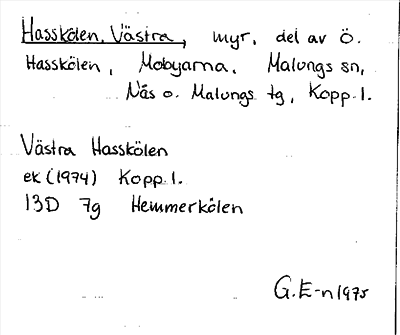 Hasskölen, Västra, myr, del av Ö.
Hasskölen, Mobyarna, Malungs sn,
Nås o. Malungs tg, Kopp. l.
Västra Hasskölen
ek (1974) Kopp. l.
13D 7g Hemmerkölen
G.E-n 1975